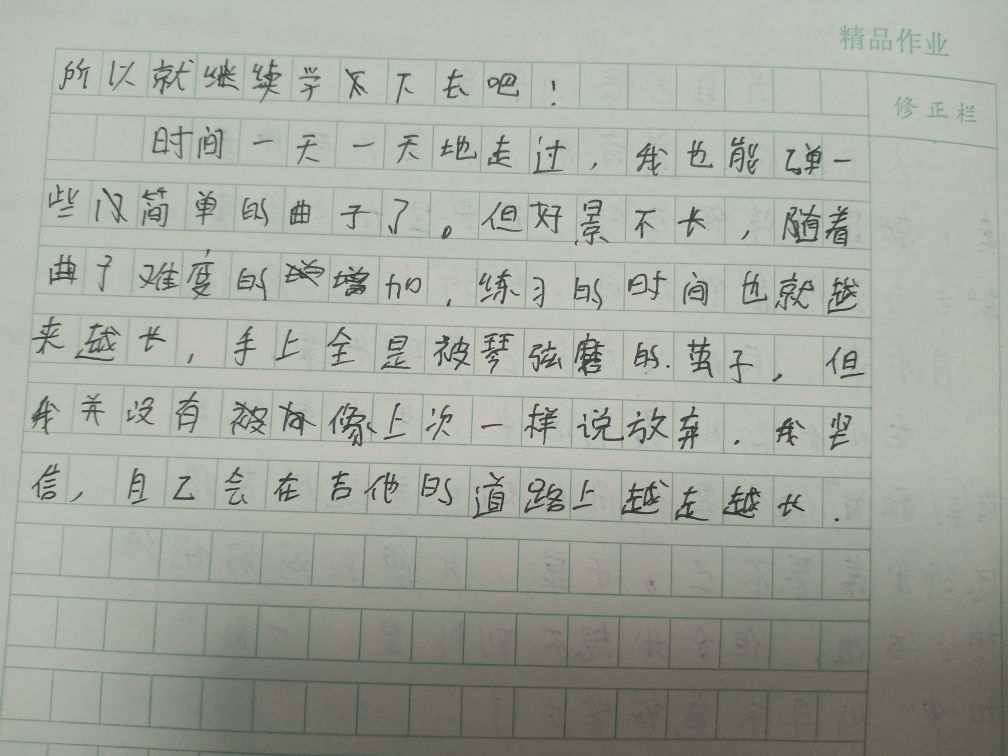 精品作业
修正栏
所以就继续学下去吧！
时间一天一天地走过，我也能弹一
些简单的曲子了。但好景不长，随着
曲子难度的增加，练习的时间也就越
来越长，手上全是被琴弦磨的茧子，但
我并没有像上次一样说放弃．我坚
信，自己会在吉他的道路上越走越长．